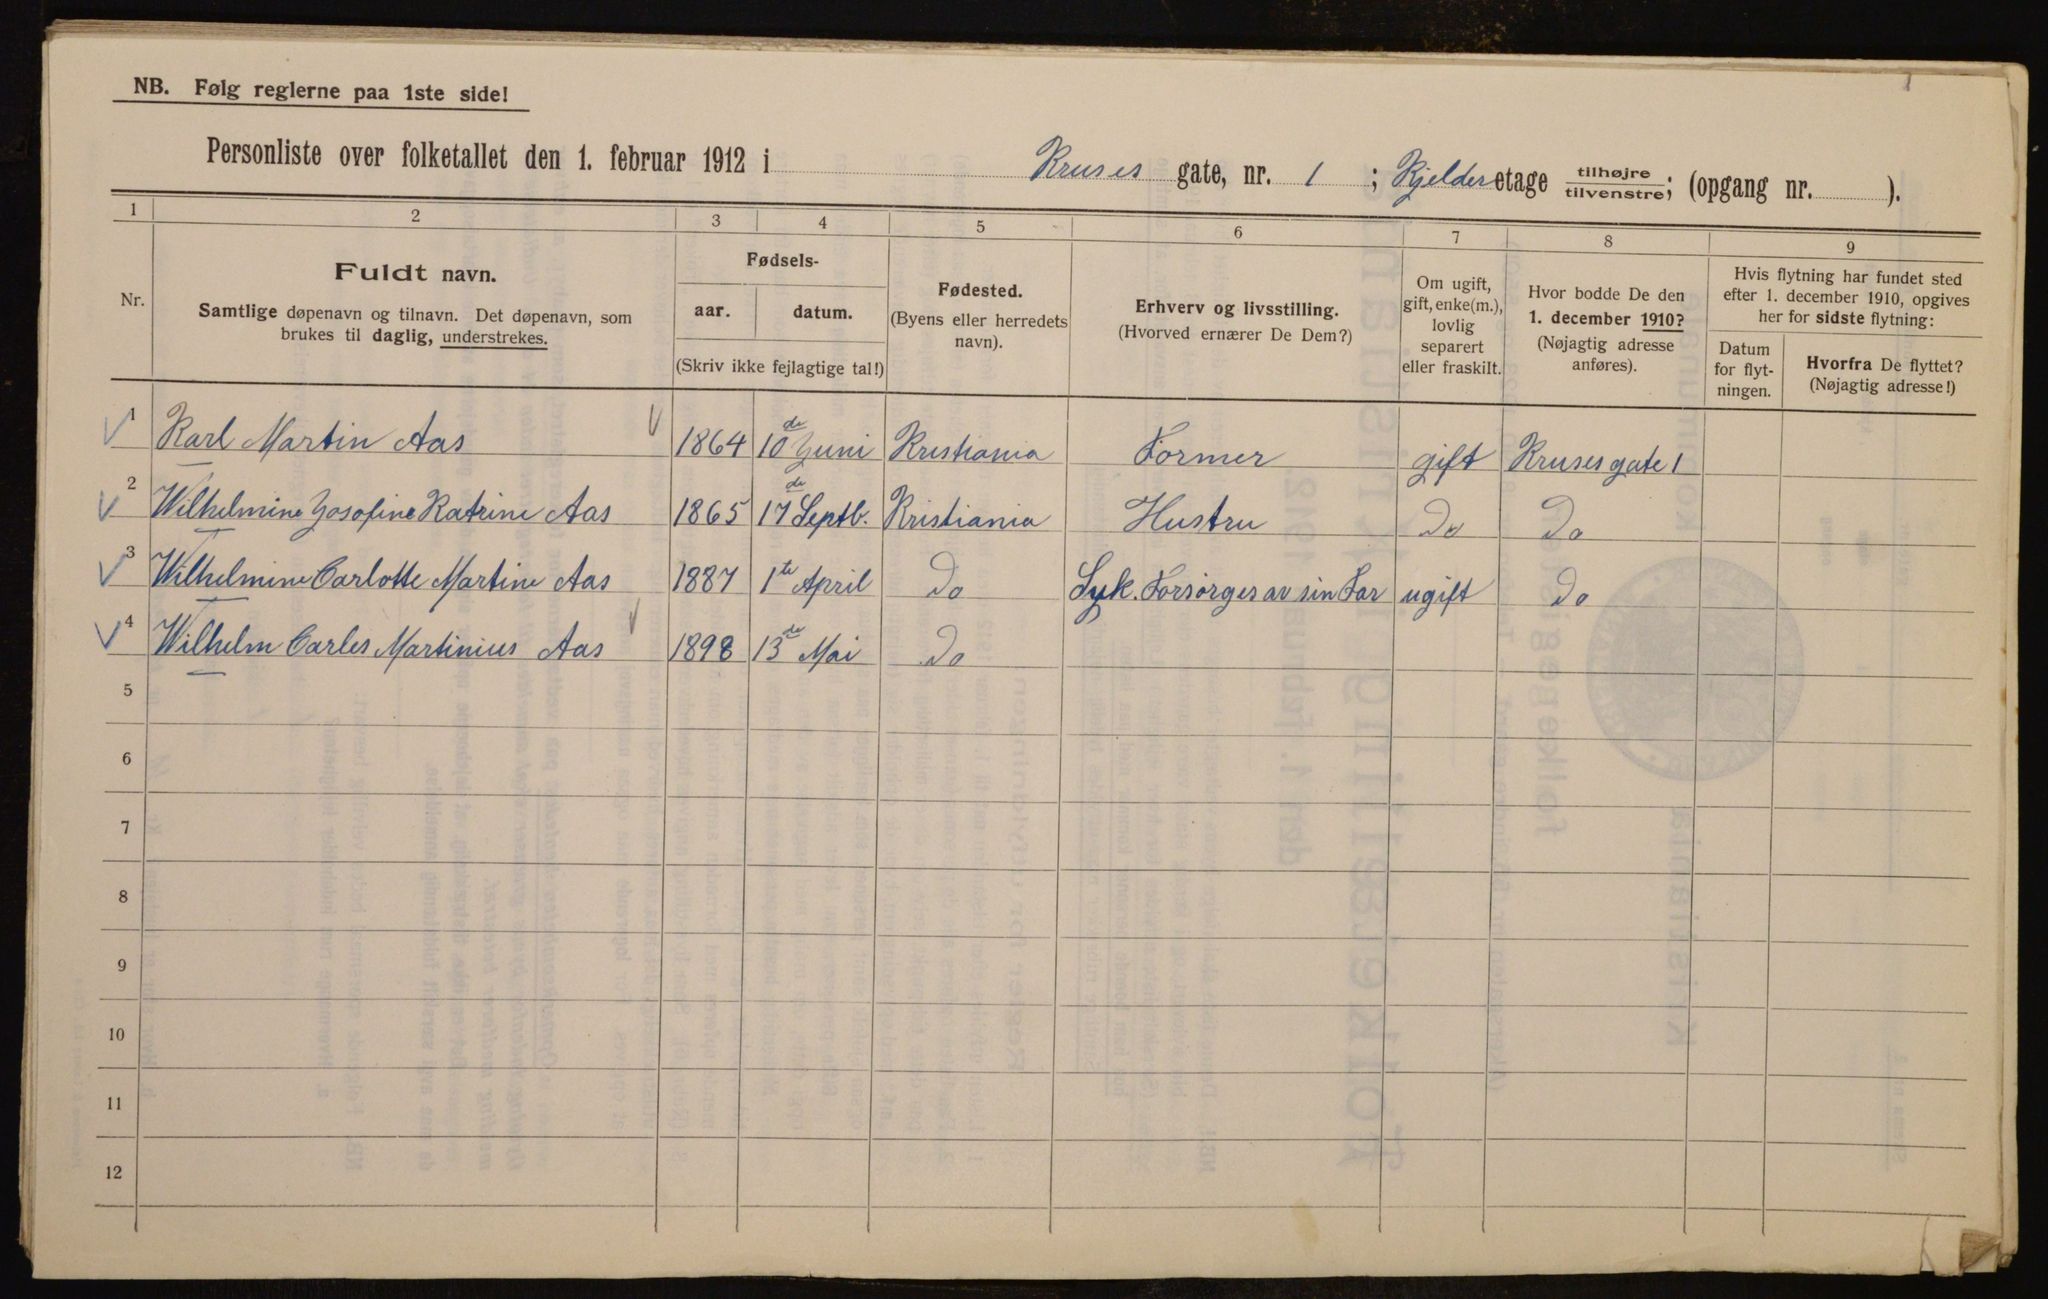 NB. Følg reglerne paa 1ste side!
Personliste over folketallet den 1. februar 1912 i Kruses gate, nr. 1 ; Kjelder etage tilhøjre/tilvenstre; (opgang nr. ).
1 2 3 4 5 6 7 8 9
Nr.
Fuldt navn.
Samtlige døpenavn og tilnavn. Det døpenavn, som
brukes til daglig, understrekes.
Fødsels-
aar. datum.
(Skriv ikke fejlagtige tal!)
Fødested.
(Byens eller herredets
navn).
Erhverv og livsstilling.
(Hvorved ernærer De Dem?)
Om ugift,
gift, enke(m.),
lovlig
separert
eller fraskilt.
Hvor bodde De den
1. december 1910?
(Nøjagtig adresse
anføres).
Hvis flytning har fundet sted
efter 1. december 1910, opgives
her for sidste flytning:
Datum
for flyt-
ningen.
Hvorfra De flyttet?
(Nøjagtig adresse!)
1 Karl Martin Aas 1864 10de Juni Kristiania Former gift Kruses gate 1
2 Wilhelmine Josofine Katrine Aas 1865 17de Septb. Kristiania Hustru Do Do
3 Wilhelmine Carlotte Martine Aas 1887 1te April Do Syk. Forsørges av sin Far ugift Do
4 Wilhelm Carles Martinius Aas 1898 13de Mai Do
5
6
7
8
9
10
11
12